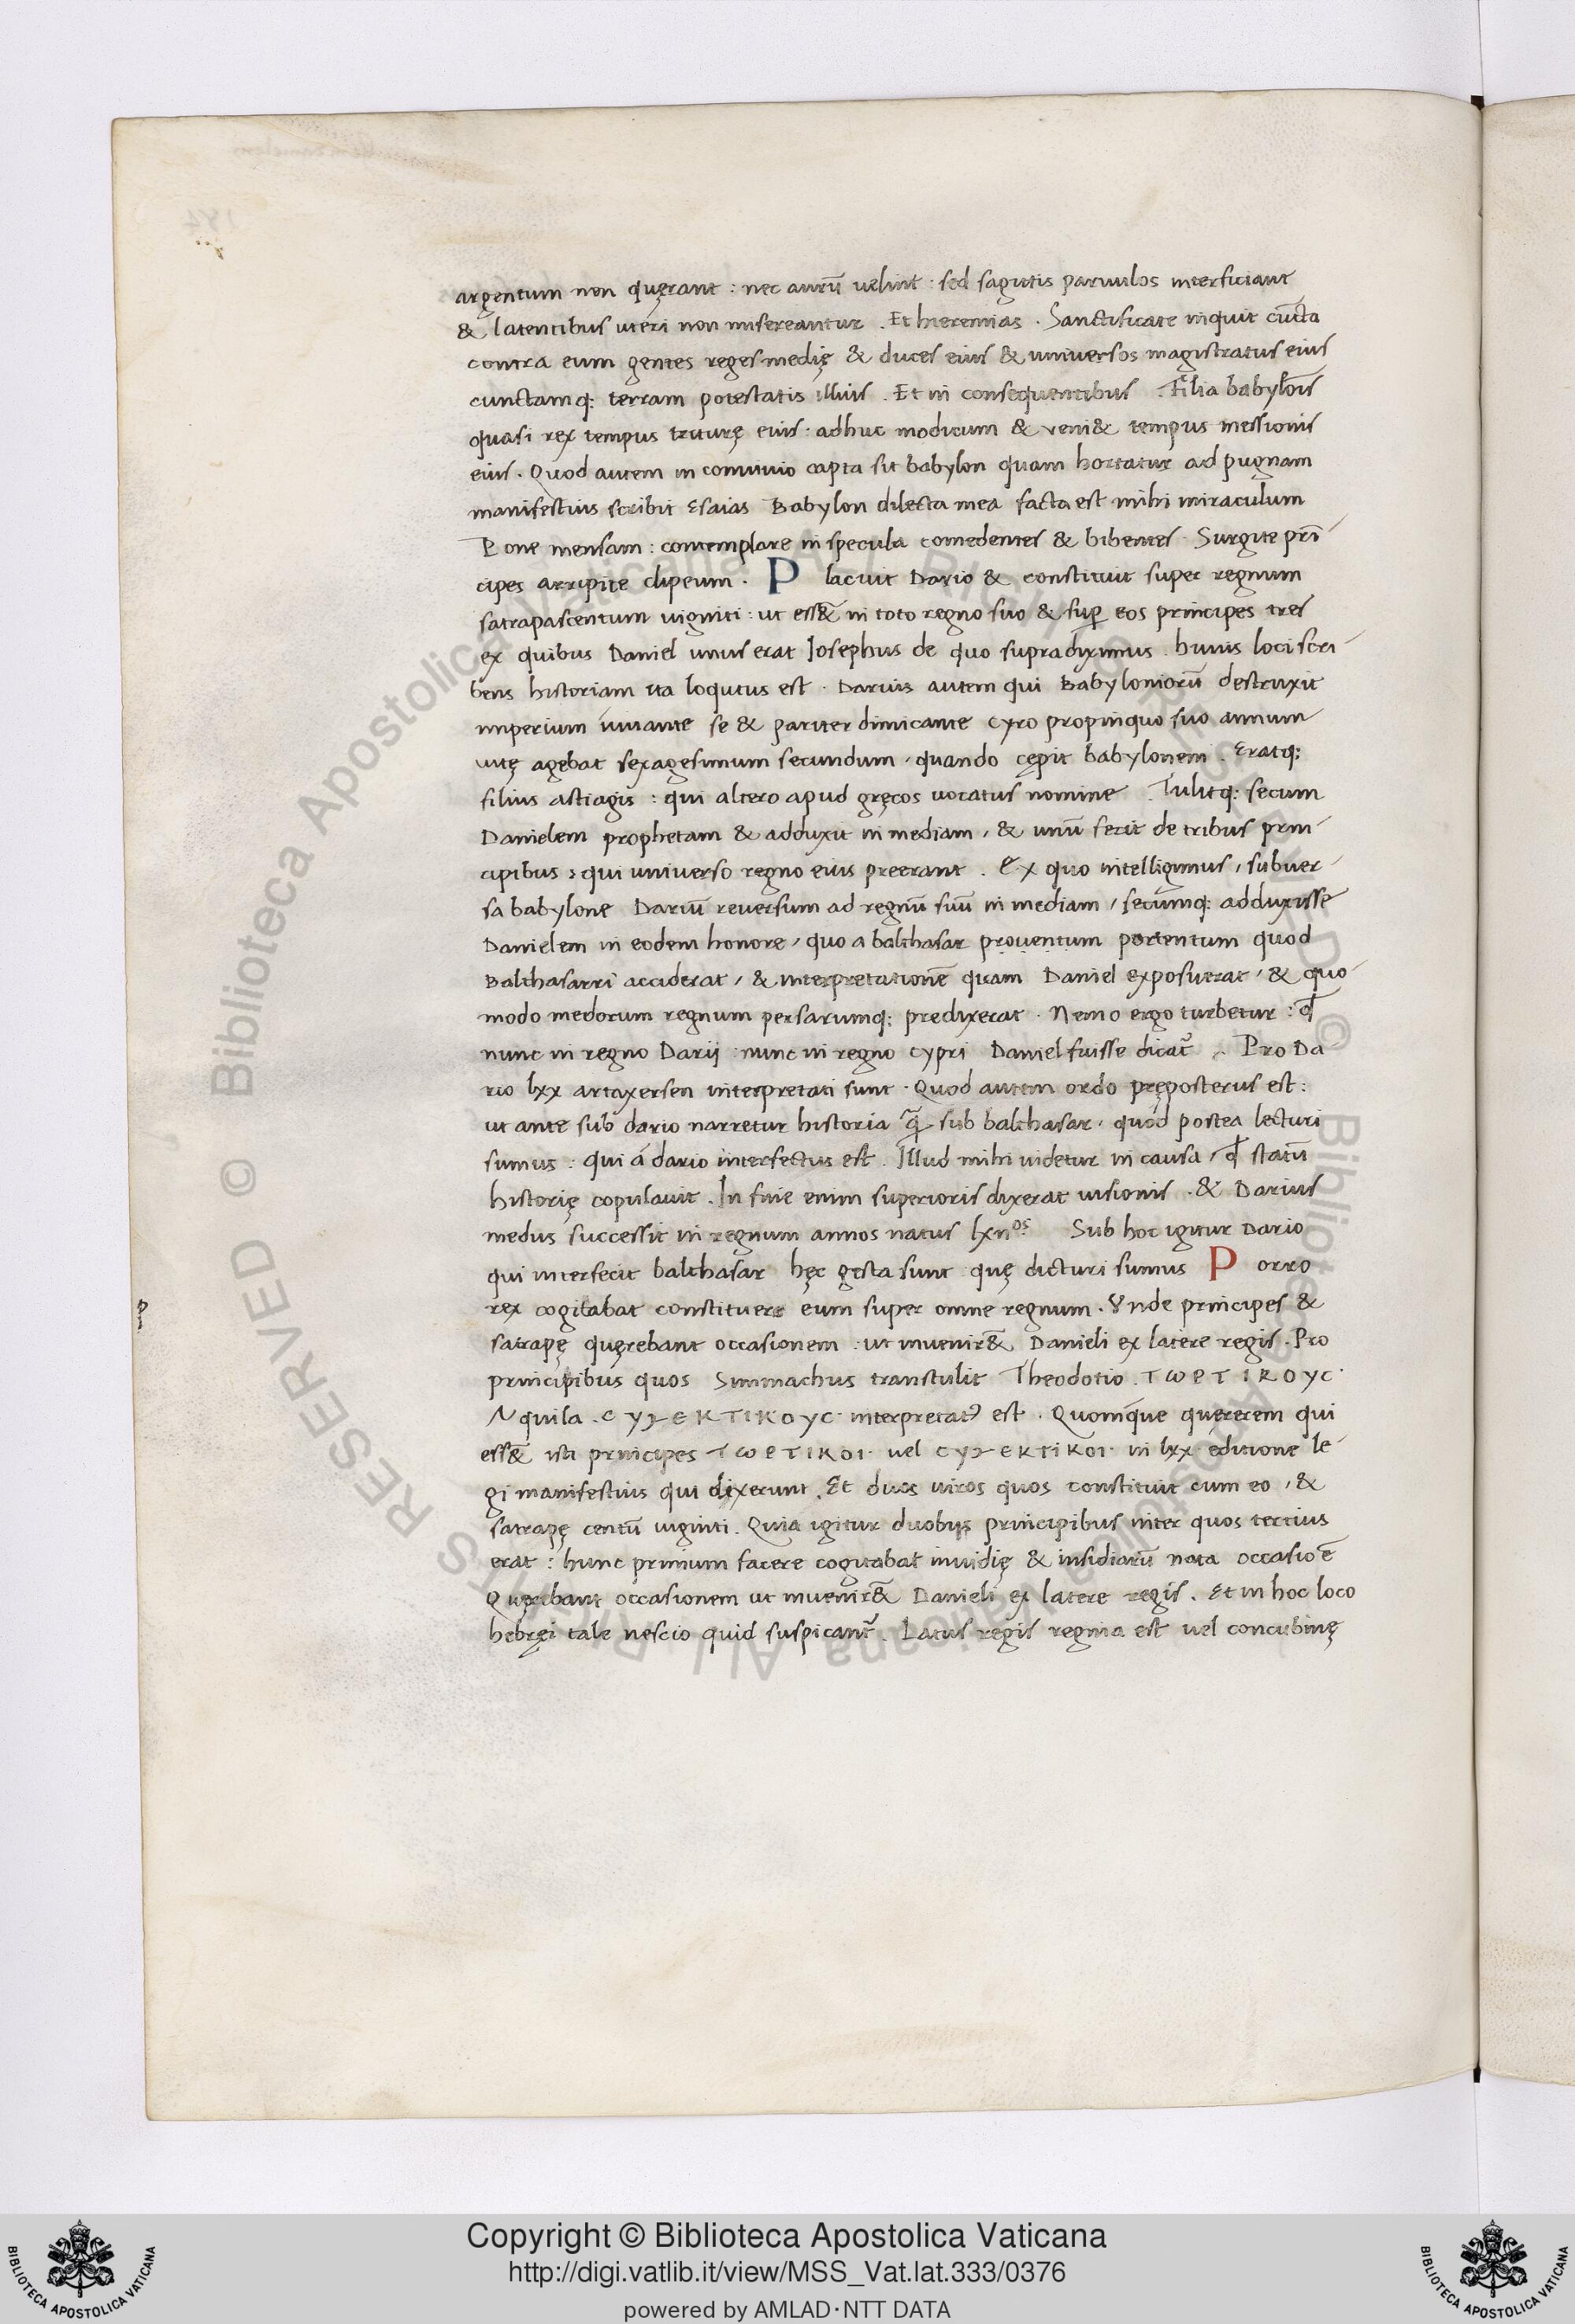 argentum non quęrant : nec aurū uelint : sed sagittis paruulos interficiant
& latentibus uteri non misereantur . Et hieremias . Sanctificate inquit cūcta
contra eum gentes reges medię & duces eius & universos magistratus eius
cunctamq; terram potestatis illius . Et in consequentibus . Filia babylōis
quasi rex tempus triturę eius : adhuc modicum & veni& tempus messionis
eius . Quod autem in conuiuio capta sit babylon quam hortatur ad pugnam
manifestius scribit Esaias Babylon dilecta mea facta est mihi miraculum
Pone mensam : contemplare in specula comedentes & bibentes . Surgite prī
cipes arripite clipeum . P lacuit Dario & constituit super regnum
satrapas centum uiginti : ut ess& in toto regno suo & suꝑ eos principes tres
ex quibus Daniel unus erat Iosephus de quo supra diximus . huius loci scri
bens historiam ita loqutus est . Darius autem qui Babyloniorū destruxit
imperium iuuante se & pariter dimicante Cyro propinquo suo annum
uitę agebat sexagesimum secundum , quando cępit babylonem . Eratq;
filius astiagis : qui altero apud gręcos uocatus nomine . Tulitq; secum
Danielem prophetam & adduxit in mediam , & unū fecit de tribus prin
cipibus , qui universo regno eius preerant . Ex quo intelligimus , subuer
sa babylone Dariū reuersum ad regnū suū in mediam , secumq; adduxisse
Danielem in eodem honore , quo a balthasar prouentum portentum quod
Balthasarri acciderat , & interpretationē quam Daniel exposuerat , & quo
modo medorum regnum persarumq; predixerat . Nemo ergo turbetur : qđ
nunc in regno Darij nunc in regno cypri Daniel fuisse dicat᷑ . Pro Da
rio lxx artaxersen interpretati sunt . Quod autem ordo pręposterus est :
ut ante sub dario narretur historia sub balthasar , quod postea lecturi
sumus : qui á dario interfectus est . Illud mihi uidetur in causa , qđ statū
historię copulauit . In fine enim superioris dixerat uisionis . & Darius
medus successit in regnum annos natus lxnos Sub hoc igitur Dario
qui interfecit balthasar hęc gesta sunt quę dicturi sumus P orro
rex cogitabat constituere eum super omne regnum . Vnde principes &
satrapę quęrebant occasionem : ut inuenir& Danieli ex latere regis . Pro
principibus quos Simmachus transtulit Theodotio . ΤωΡΤΙΚΟΥC
Aquila . CΥΓΕΚΤΙΚΟΥC interpretat᷒ est . Quomque quęrerem qui
ess& isti principes ΤωΡΤΙΚΟΙ uel CΥΓΕΚΤΙΚΟΙ in lxx editione le
gi manifestius qui dixerunt . Et duos uiros quos constituit cum eo , &
satrapę centū uiginti . Quia igitur duobus principibus inter quos tertius
erat : hunc primum facere cogitabat inuidię & insidiarū nata occasiōe
Quęrebant occasionem ut inuenir& Danieli ex latere regis . Et in hoc loco
hebręi tale nescio quid suspicant᷑ . Latus regis regina est uel concubinę
Copyright © Biblioteca Apostolica Vaticana
http://digi.vatlib.it/view/MSS_Vat.lat.333/0376
powered by AMLAD·NTT DATA